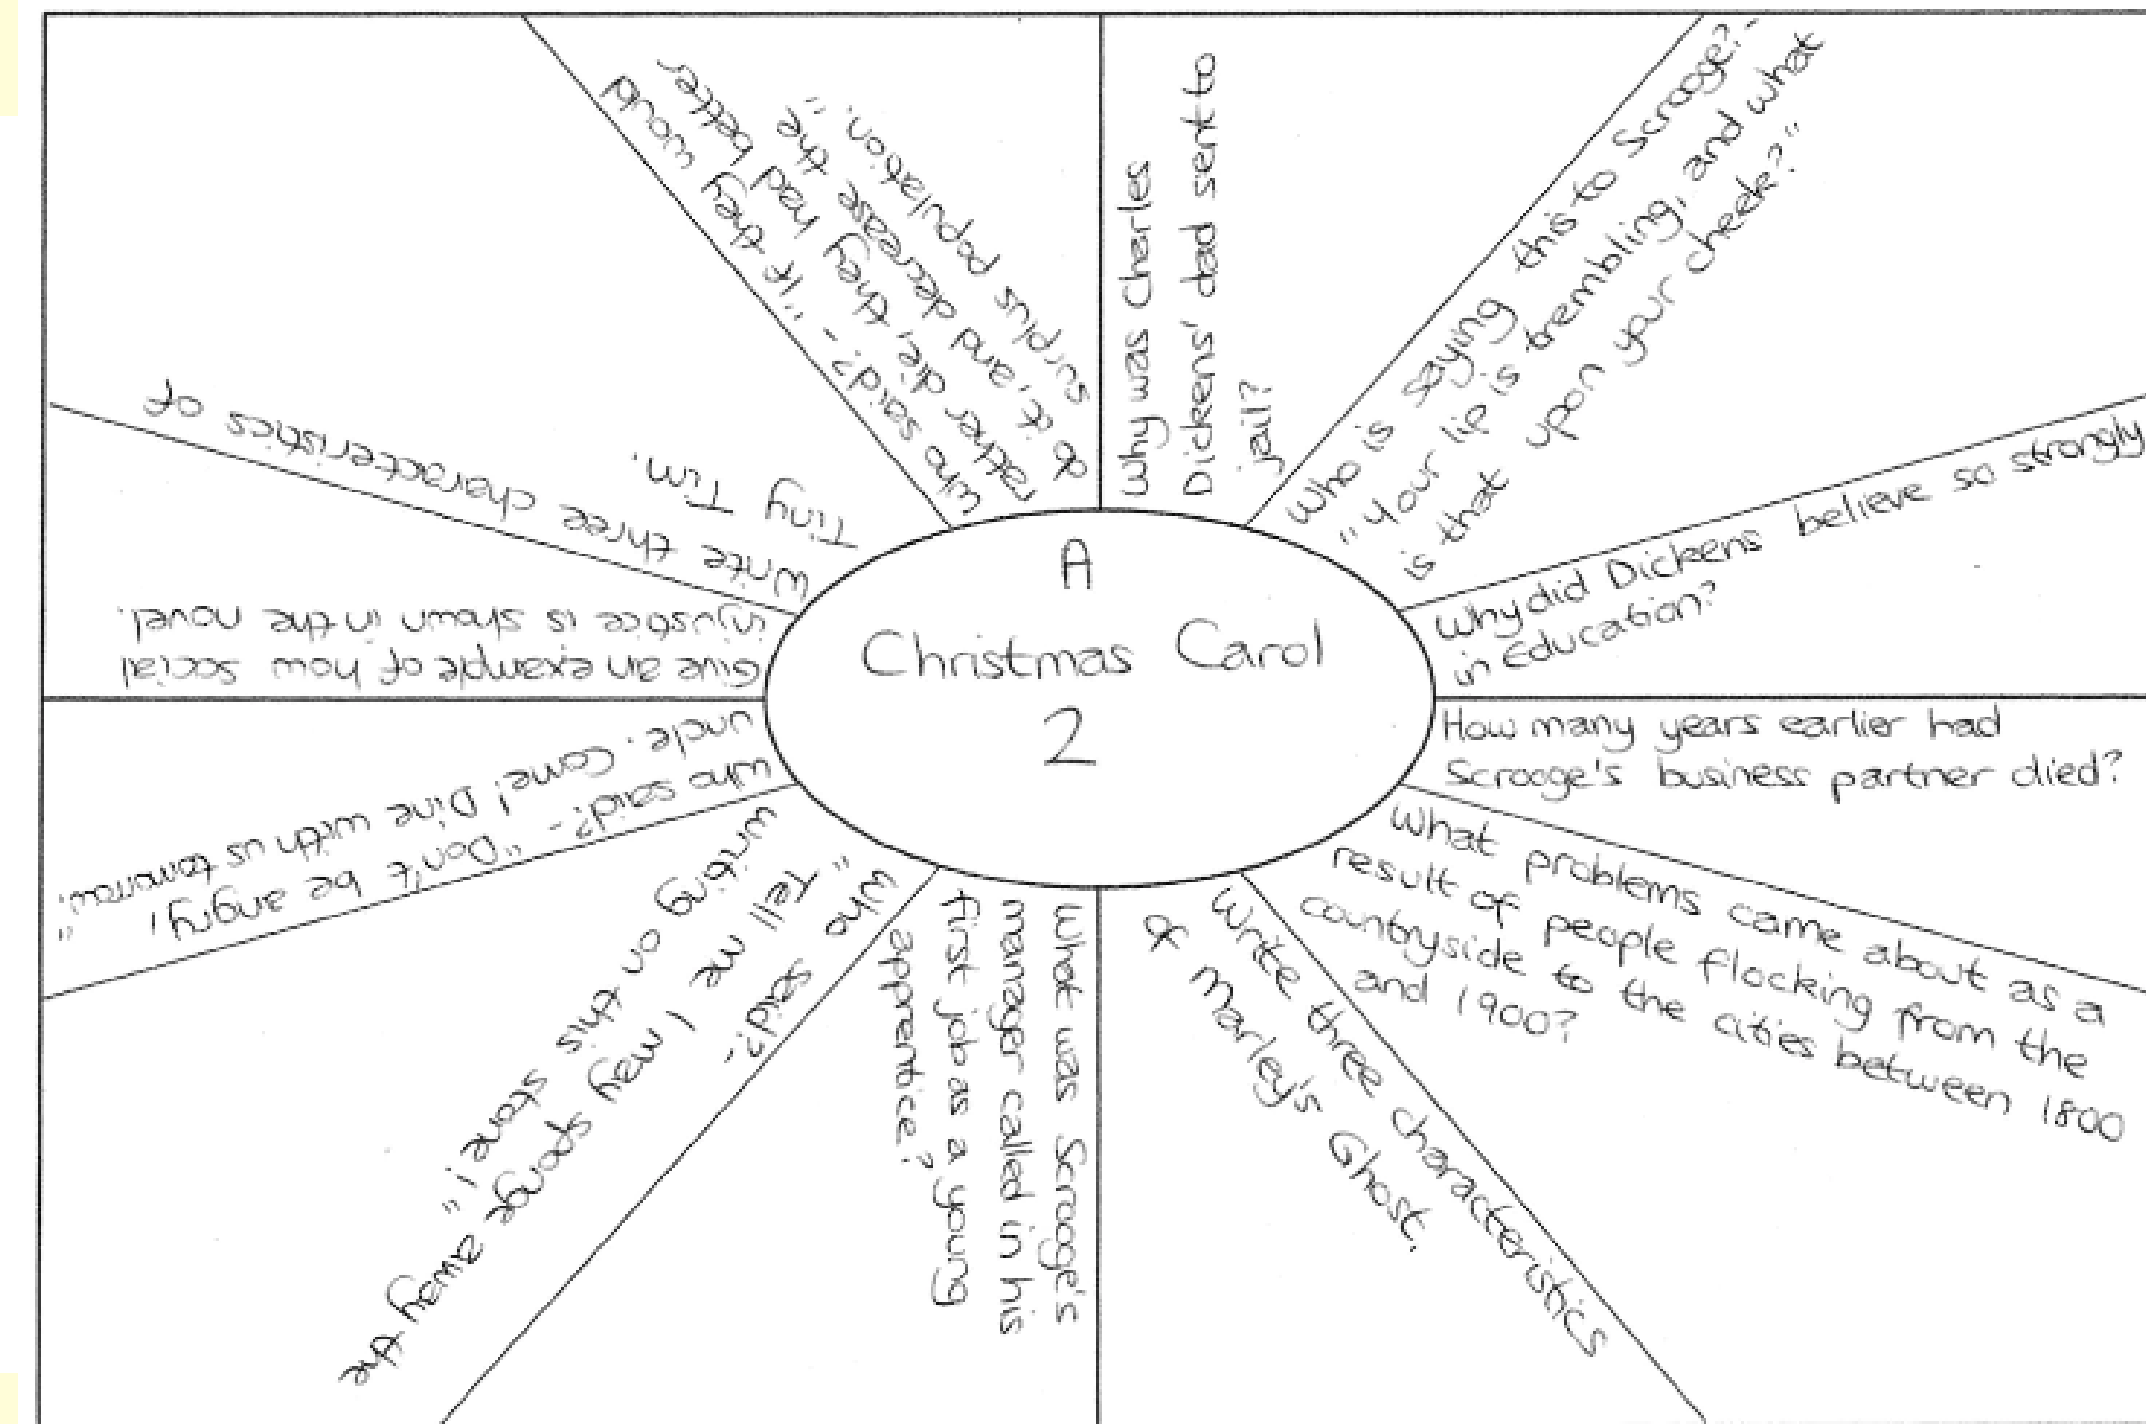 A
Christmas Carol
2
Why was Charles
Dickens' dad sent to
jail?
Who is saying this to Scrooge? -
"Your lip is trembling, and what
is that upon your cheek?"
Why did Dickens believe so strongly
in Education?
How many years earlier had
Scrooge's business partner died?
What problems came about as a
result of people flocking from the
countryside to the cities between 1800
and 1900?
Write three characteristics
of Marley's Ghost.
What was Scrooge's
manager called in his
first job as a young
apprentice?
Who said? -
"Tell me I may sponge away the
writing on this stone!"
Who said? - "Don't be angry,
uncle. Come! Dine with us tomorrow."
Give an example of how social
injustice is shown in the novel.
Write three characteristics of
Tiny Tim.
Who said? - "If they would
rather die, they had better
do it, and decrease the
surplus population."